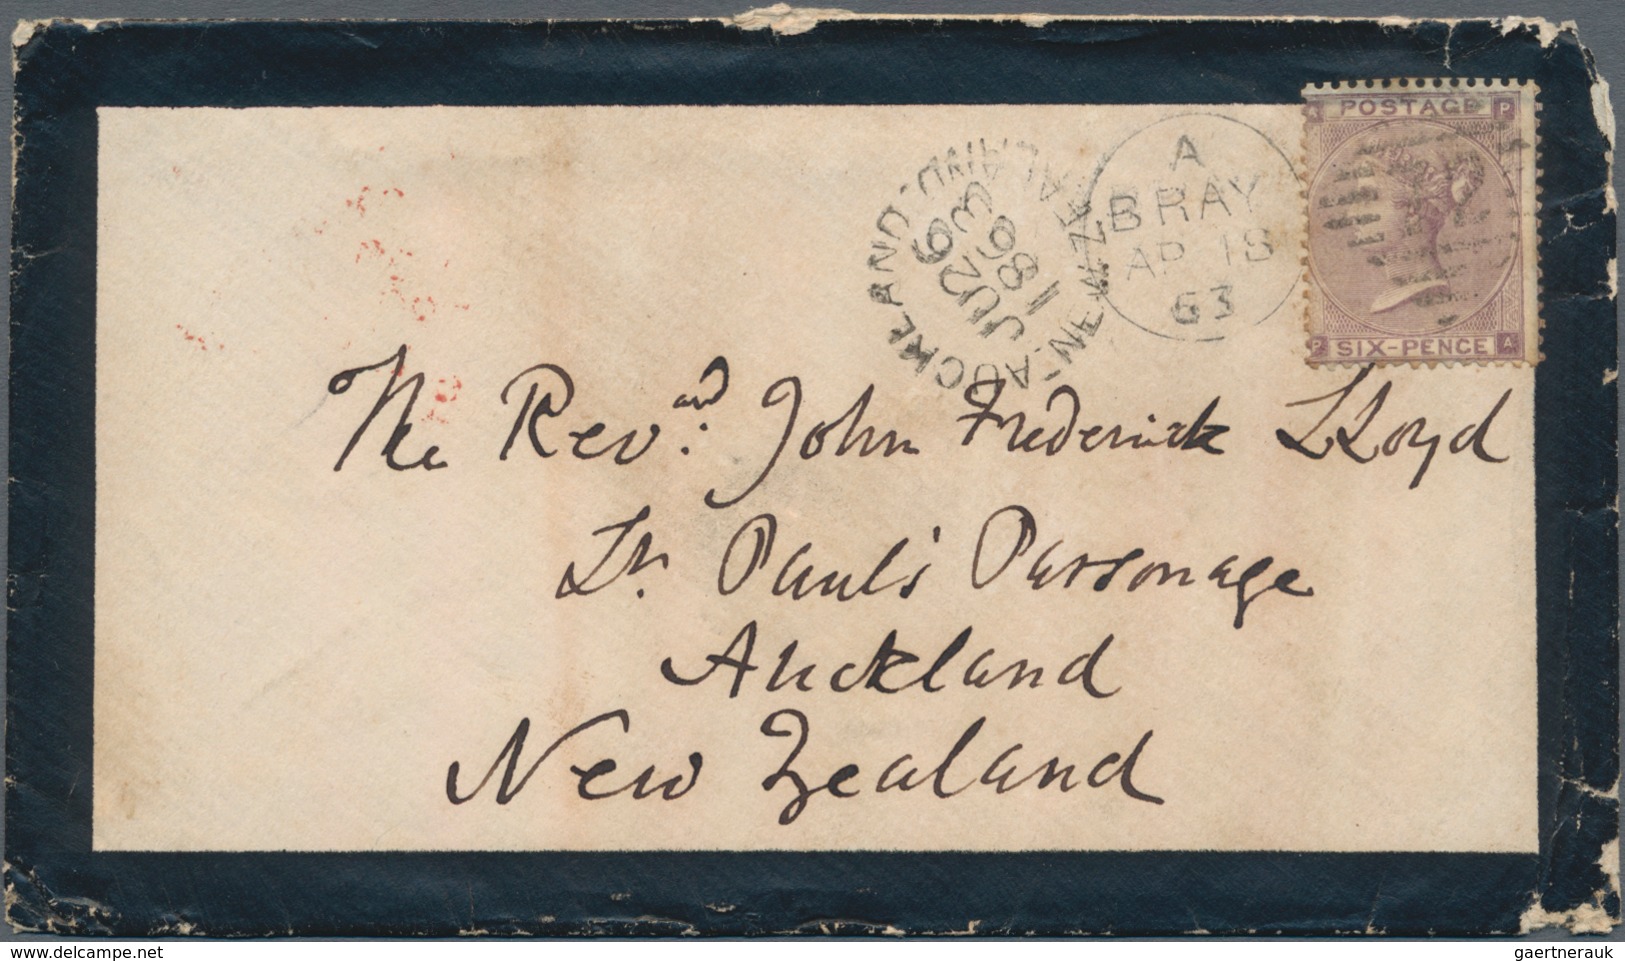 POSTAGE
P
SIX-PENCE
P A
A
BRAY
AP 18
63
AUCKLAND
NEW
JU 26
1863
The Revᵃⁿᵈ: John Frederick Lloyd
St. Paul's Parsonage
Auckland
New Zealand
www.delcampe.net
gaertnerauk